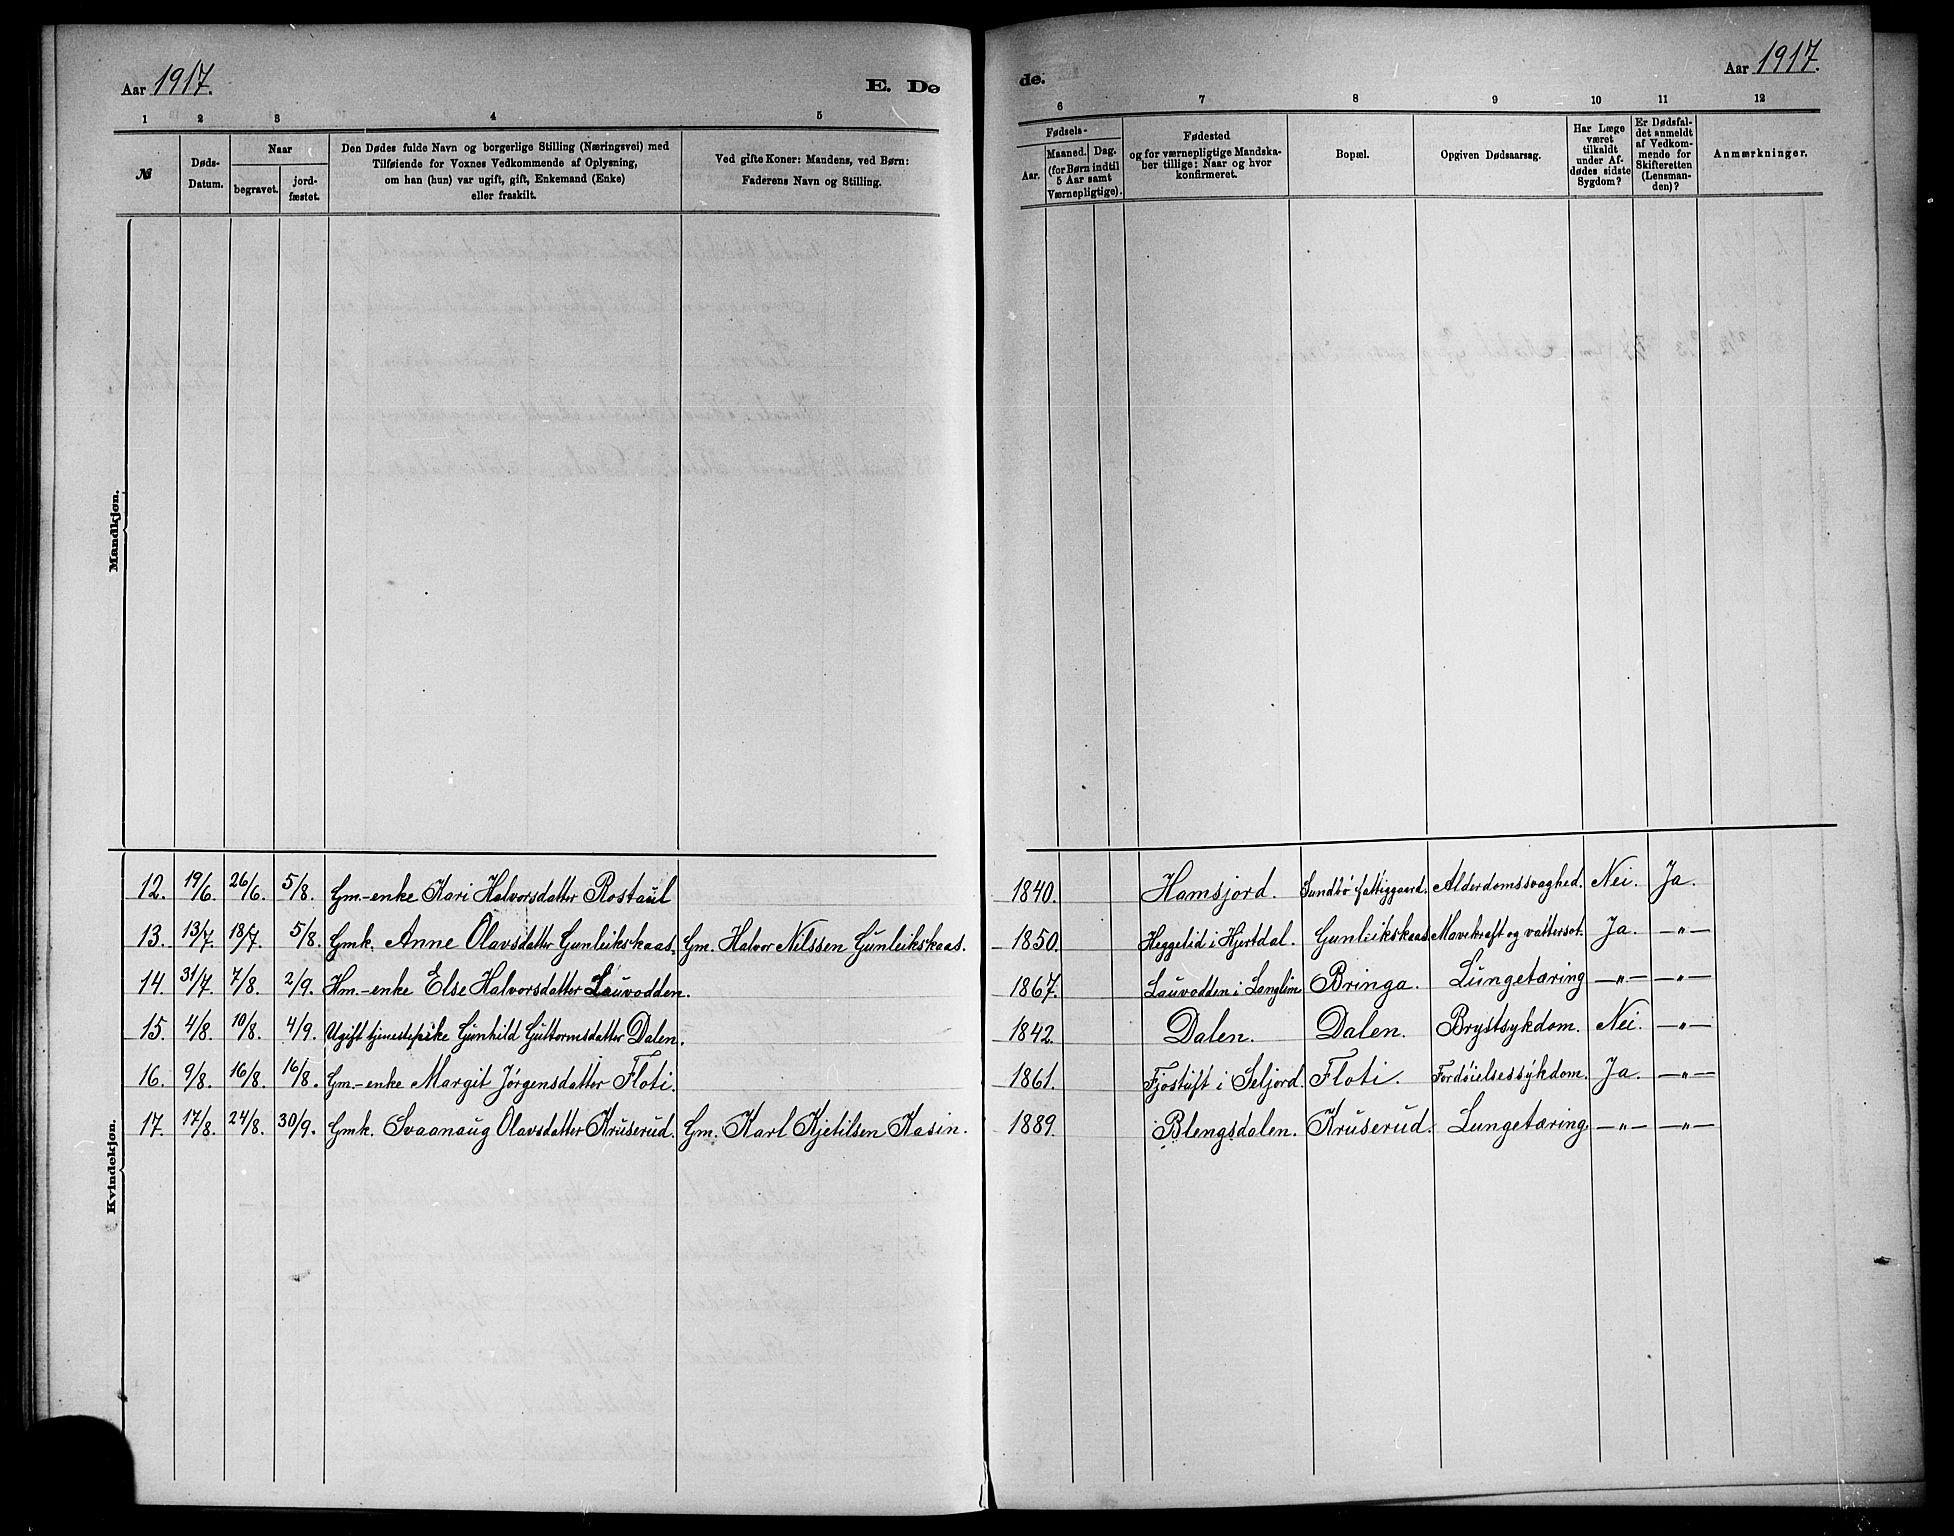 Aar 1917.
E. Dø
1 2 3 4 5
№
Døds-
Datum.
Naar
begravet.
jord-
fæstet.
Den Dødes fulde Navn og borgerlige Stilling (Næringsvei) med
Tilføiende for Voxnes Vedkommende af Oplysning,
om han (hun) var ugift, gift, Enkemand (Enke)
eller fraskilt.
Ved gifte Koner: Mandens, ved Børn:
Faderens Navn og Stilling.
Mandkjøn.
Kvindekjøn.
12. 19/6. 26/6. 5/8. Gm.-enke Kari Halvorsdatter Rostaul
13. 13/7. 18/7. 5/8. Gmk. Anne Olavsdatter Gunleikskaas. Gm. Halvor Nilssen Gunleikskaas.
14. 31/7. 7/8. 2/9. Hm.-enke Else Halvorsdatter Lauvodden.
15. 4/8. 10/8. 4/9. Ugift tjenestepike Gunhild Guttormsdatter Dalen.
16. 9/8. 16/8. 16/8. Gm.-enke Margit Jørgensdatter Floti.
17. 17/8. 24/8. 30/9. Gmk. Svaanaug Olavsdatter Kruserud. Gm. Karl Kjetilsen Kasin.
de.
Aar 1917.
6 7 8 9 10 11 12
Fødsels-
Aar.
Maaned. Dag.
(for Børn indtil
5 Aar samt
Værnepligtige).
Fødested
og for værnepligtige Mandska-
ber tillige: Naar og hvor
konfirmeret.
Bopæl.
Opgiven Dødsaarsag.
Har Læge
været
tilkaldt
under Af-
dødes sidste
Sygdom?
Er Dødsfal-
det anmeldt
af Vedkom-
mende for
Skifteretten
(Lensman-
den)?
Anmærkninger.
1840. Hamsjord. Sundbø fattiggaard. Alderdomssvaghed. Nei. Ja.
1850. Heggelid i Hjertdal. Gunleikskaas. Mavekraft og vattersot. Ja. —"—
1867. Lauvodden i Langlim Bringa. Lungetæring —"— —"—
1842. Dalen. Dalen. Brystsykdom. Nei. —"—
1861. Fjostuft i Seljord. Floti. Fordøielsessykdom. Ja. —"—
1889. Blengsdalen. Kruserud. Lungetæring. —"— —"—